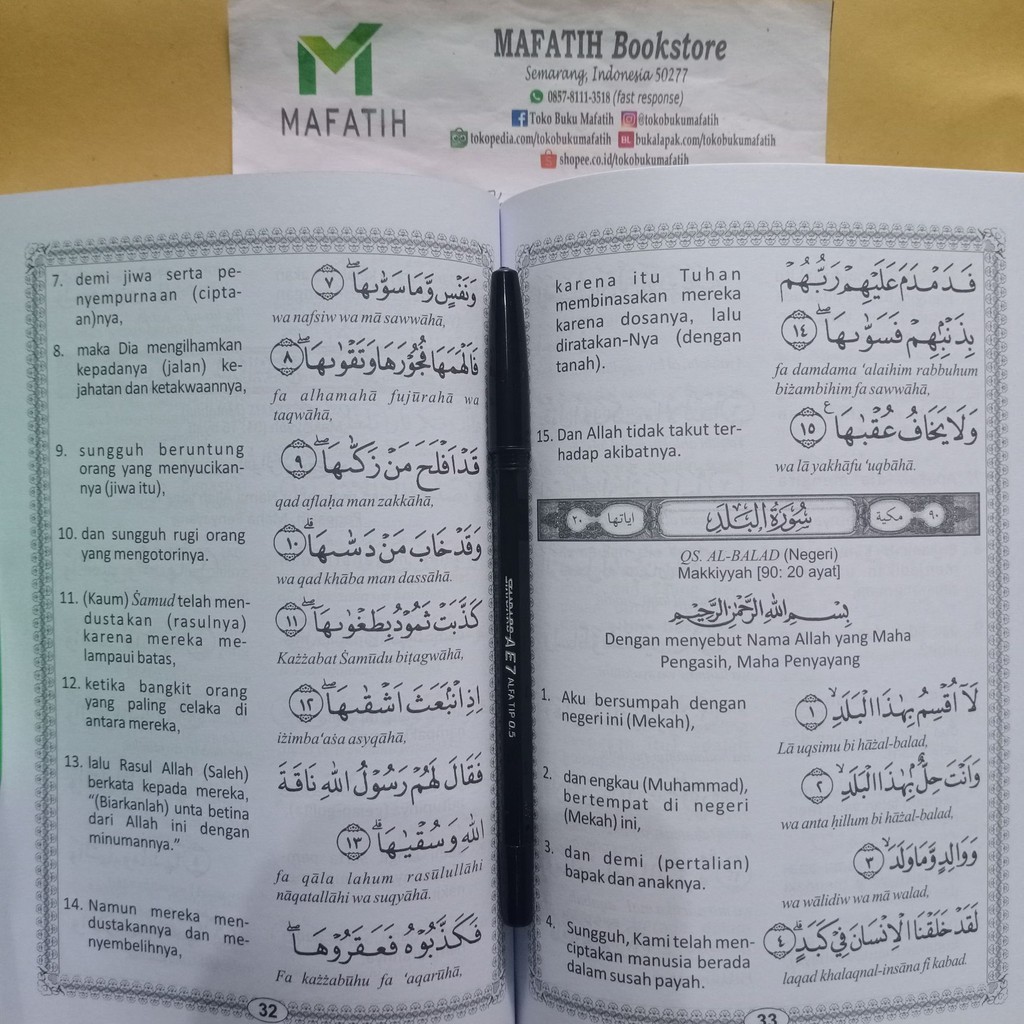 MAFATIH
MAFATIH Bookstore
Semarang, Indonesia 50277
0857-8111-3518 (fast response)
Toko Buku Mafatih @tokobukumafatih
tokopedia.com/tokobukumafatih BL bukalapak.com/tokobukumafatih
shopee.co.id/tokobukumafatih
7. demi jiwa serta pe-
nyempurnaan (cipta-
an)nya,
وَنَفْسٍ وَّمَا سَوّٰىهَاۖ ۝٧
wa nafsiw wa mā sawwāhā,
8. maka Dia mengilhamkan
kepadanya (jalan) ke-
jahatan dan ketakwaannya,
فَاَلْهَمَهَا فُجُوْرَهَا وَتَقْوٰىهَاۖ ۝٨
fa alhamahā fujūrahā wa
taqwāhā,
9. sungguh beruntung
orang yang menyucikan-
nya (jiwa itu),
قَدْ اَفْلَحَ مَنْ زَكّٰىهَاۖ ۝٩
qad aflaḥa man zakkāhā,
10. dan sungguh rugi orang
yang mengotorinya.
وَقَدْ خَابَ مَنْ دَسّٰىهَاۗ ۝١٠
wa qad khāba man dassāhā.
11. (Kaum) Ṡamud telah men-
dustakan (rasulnya)
karena mereka me-
lampaui batas,
كَذَّبَتْ ثَمُوْدُ بِطَغْوٰىهَآۖ ۝١١
Każżabat Ṡamūdu biṭagwāhā,
12. ketika bangkit orang
yang paling celaka di
antara mereka,
اِذِ انْۢبَعَثَ اَشْقٰىهَاۖ ۝١٢
iżimba‘aṡa asyqāhā,
13. lalu Rasul Allah (Saleh)
berkata kepada mereka,
“(Biarkanlah) unta betina
dari Allah ini dengan
minumannya.”
فَقَالَ لَهُمْ رَسُوْلُ اللّٰهِ نَاقَةَ
اللّٰهِ وَسُقْيٰهَاۗ ۝١٣
fa qāla lahum rasūlullāhi
nāqatallāhi wa suqyāhā.
14. Namun mereka men-
dustakannya dan me-
nyembelihnya,
فَكَذَّبُوْهُ فَعَقَرُوْهَاۖ
Fa każżabūhu fa ‘aqarūhā,
32
karena itu Tuhan
membinasakan mereka
karena dosanya, lalu
diratakan-Nya (dengan
tanah).
فَدَمْدَمَ عَلَيْهِمْ رَبُّهُمْ
بِذَنْۢبِهِمْ فَسَوّٰىهَاۖ ۝١٤
fa damdama ‘alaihim rabbuhum
biżambihim fa sawwāhā,
15. Dan Allah tidak takut ter-
hadap akibatnya.
وَلَا يَخَافُ عُقْبٰهَا ࣖ ۝١٥
wa lā yakhāfu ‘uqbāhā.
٩٠ مكية سُوْرَةُ الْبَلَدِ اياتها ٢٠
QS. AL-BALAD (Negeri)
Makkiyyah [90: 20 ayat]
بِسْمِ اللّٰهِ الرَّحْمٰنِ الرَّحِيْمِ
Dengan menyebut Nama Allah yang Maha
Pengasih, Maha Penyayang
1. Aku bersumpah dengan
negeri ini (Mekah),
لَآ اُقْسِمُ بِهٰذَا الْبَلَدِۙ ۝١
Lā uqsimu bi hāżal-balad,
2. dan engkau (Muhammad),
bertempat di negeri
(Mekah) ini,
وَاَنْتَ حِلٌّۢ بِهٰذَا الْبَلَدِۙ ۝٢
wa anta ḥillum bi hāżal-balad,
3. dan demi (pertalian)
bapak dan anaknya.
وَوَالِدٍ وَّمَا وَلَدَۙ ۝٣
wa wālidiw wa mā walad,
4. Sungguh, Kami telah men-
ciptakan manusia berada
dalam susah payah.
لَقَدْ خَلَقْنَا الْاِنْسَانَ فِيْ كَبَدٍۗ ۝٤
laqad khalaqnal-insāna fī kabad.
33
AE7 ALFATIP 0.5